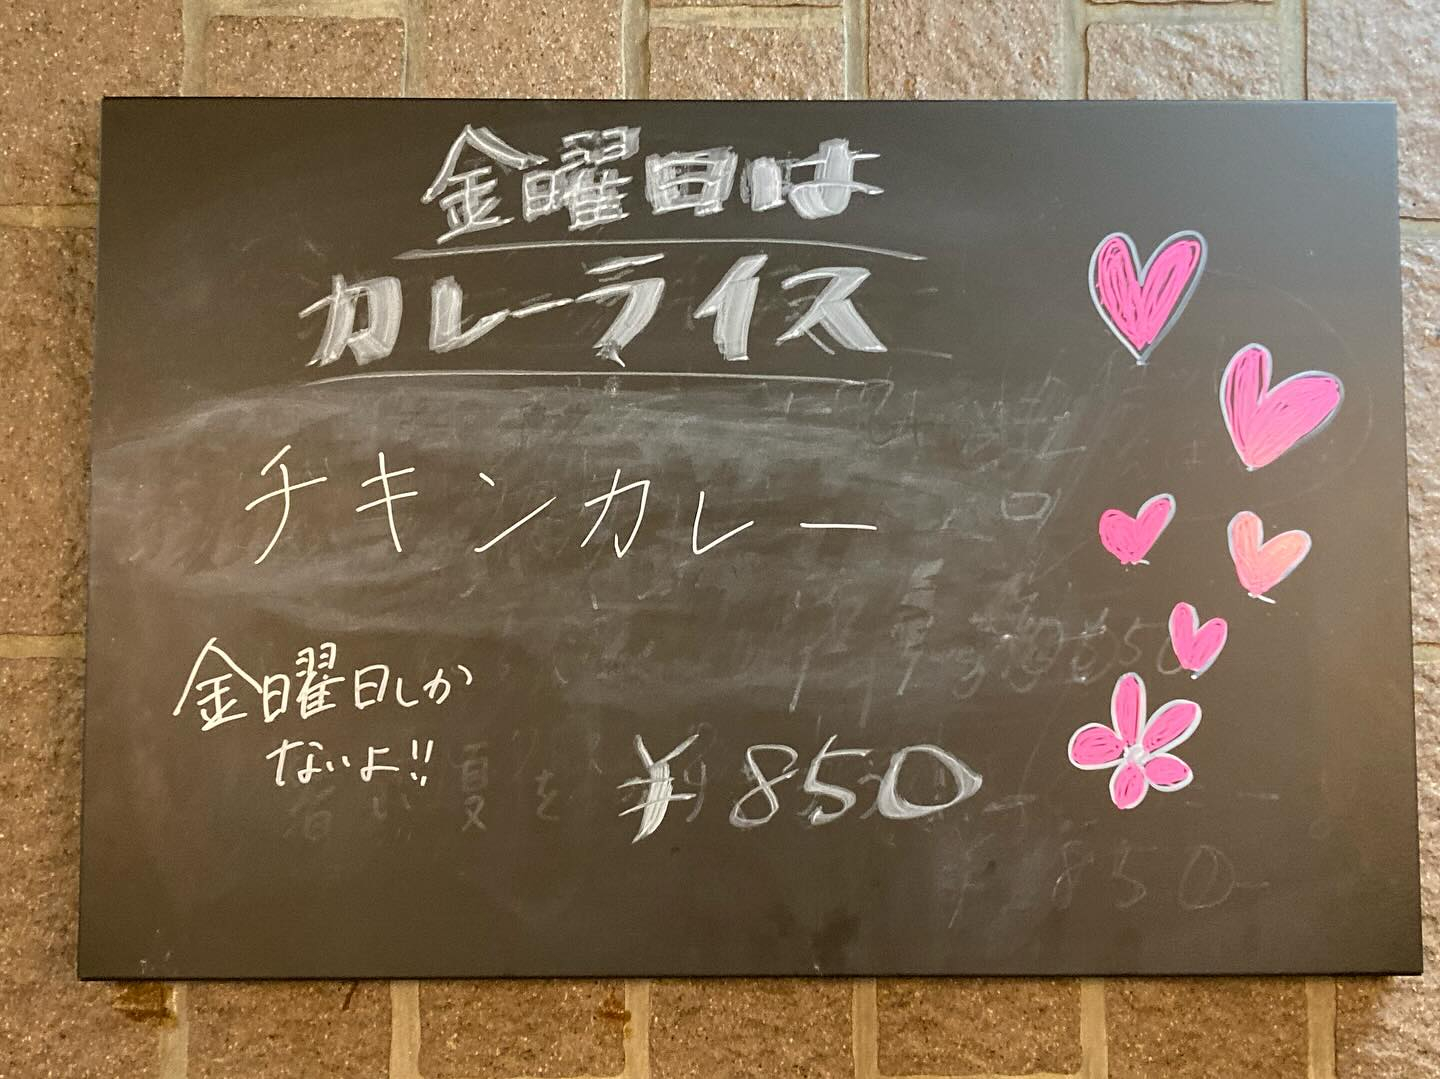 金曜日は
カレーライス
チキンカレー
金曜日しか
ないよ!!
¥850